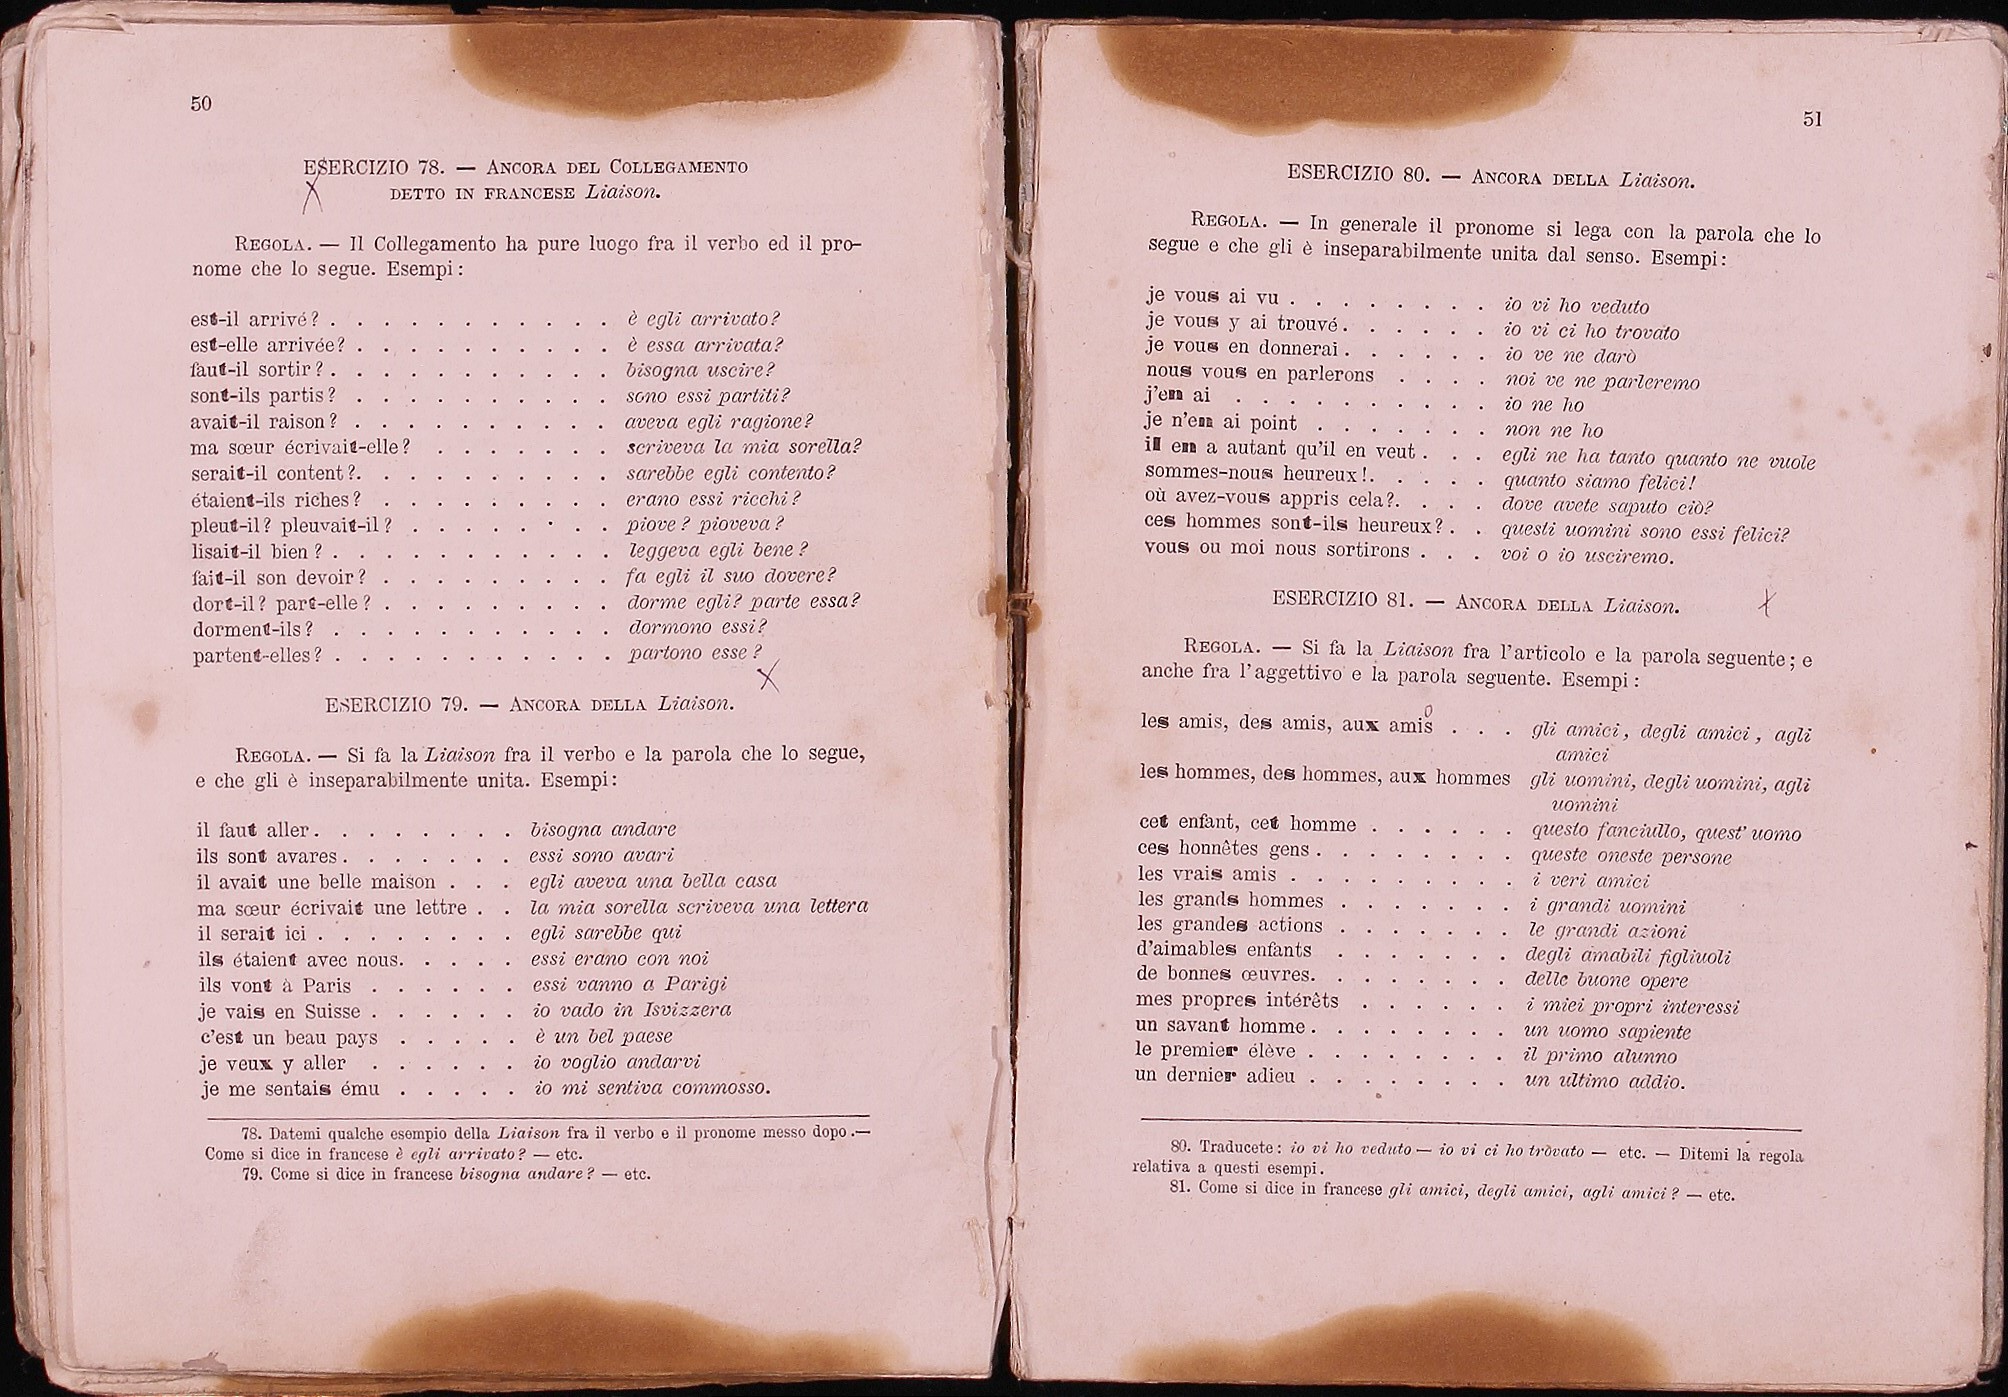 50
ESERCIZIO 78. — Ancora del Collegamento
detto in francese Liaison.
Regola. — Il Collegamento ha pure luogo fra il verbo ed il pro-
nome che lo segue. Esempi:
est-il arrivé? . . . . . . . . . . . è egli arrivato?
est-elle arrivée? . . . . . . . . . . è essa arrivata?
faut-il sortir? . . . . . . . . . . . bisogna uscire?
sont-ils partis? . . . . . . . . . . sono essi partiti?
avait-il raison? . . . . . . . . . . aveva egli ragione?
ma sœur écrivait-elle? . . . . . . . scriveva la mia sorella?
serait-il content?. . . . . . . . . . sarebbe egli contento?
étaient-ils riches? . . . . . . . . . erano essi ricchi?
pleut-il? pleuvait-il? . . . . . . . . piove? pioveva?
lisait-il bien? . . . . . . . . . . . leggeva egli bene?
fait-il son devoir? . . . . . . . . . fa egli il suo dovere?
dort-il? part-elle? . . . . . . . . . dorme egli? parte essa?
dorment-ils? . . . . . . . . . . . dormono essi?
partent-elles? . . . . . . . . . . . partono esse?
ESERCIZIO 79. — Ancora della Liaison.
Regola. — Si fa la Liaison fra il verbo e la parola che lo segue,
e che gli è inseparabilmente unita. Esempi:
il faut aller. . . . . . . . bisogna andare
ils sont avares. . . . . . . essi sono avari
il avait une belle maison . . . egli aveva una bella casa
ma sœur écrivait une lettre . . la mia sorella scriveva una lettera
il serait ici . . . . . . . . egli sarebbe qui
ils étaient avec nous. . . . . essi erano con noi
ils vont à Paris . . . . . . essi vanno a Parigi
je vais en Suisse . . . . . . io vado in Isvizzera
c'est un beau pays . . . . . è un bel paese
je veux y aller . . . . . . io voglio andarvi
je me sentais ému . . . . . io mi sentiva commosso.
78. Datemi qualche esempio della Liaison fra il verbo e il pronome messo dopo.—
Come si dice in francese è egli arrivato? — etc.
79. Come si dice in francese bisogna andare? — etc.
51
ESERCIZIO 80. — Ancora della Liaison.
Regola. — In generale il pronome si lega con la parola che lo
segue e che gli è inseparabilmente unita dal senso. Esempi:
je vous ai vu . . . . . . . . io vi ho veduto
je vous y ai trouvé. . . . . . io vi ci ho trovato
je vous en donnerai. . . . . . io ve ne darò
nous vous en parlerons . . . . noi ve ne parleremo
j'en ai . . . . . . . . . . io ne ho
je n'en ai point . . . . . . . non ne ho
il en a autant qu'il en veut . . . egli ne ha tanto quanto ne vuole
sommes-nous heureux!. . . . . quanto siamo felici!
où avez-vous appris cela?. . . . dove avete saputo ciò?
ces hommes sont-ils heureux? . . questi uomini sono essi felici?
vous ou moi nous sortirons . . . voi o io usciremo.
ESERCIZIO 81. — Ancora della Liaison.
Regola. — Si fa la Liaison fra l'articolo e la parola seguente; e
anche fra l'aggettivo e la parola seguente. Esempi:
les amis, des amis, aux amis . . . gli amici, degli amici, agli
amici
les hommes, des hommes, aux hommes gli uomini, degli uomini, agli
uomini
cet enfant, cet homme . . . . . . questo fanciullo, quest'uomo
ces honnêtes gens . . . . . . . . queste oneste persone
les vrais amis . . . . . . . . . i veri amici
les grands hommes . . . . . . . i grandi uomini
les grandes actions . . . . . . . le grandi azioni
d'aimables enfants . . . . . . . degli amabili figliuoli
de bonnes œuvres. . . . . . . . delle buone opere
mes propres intérêts . . . . . . i miei propri interessi
un savant homme . . . . . . . . un uomo sapiente
le premier élève . . . . . . . . il primo alunno
un dernier adieu . . . . . . . . un ultimo addio.
80. Traducete: io vi ho veduto — io vi ci ho trovato — etc. — Ditemi la regola
relativa a questi esempi.
81. Come si dice in francese gli amici, degli amici, agli amici? — etc.